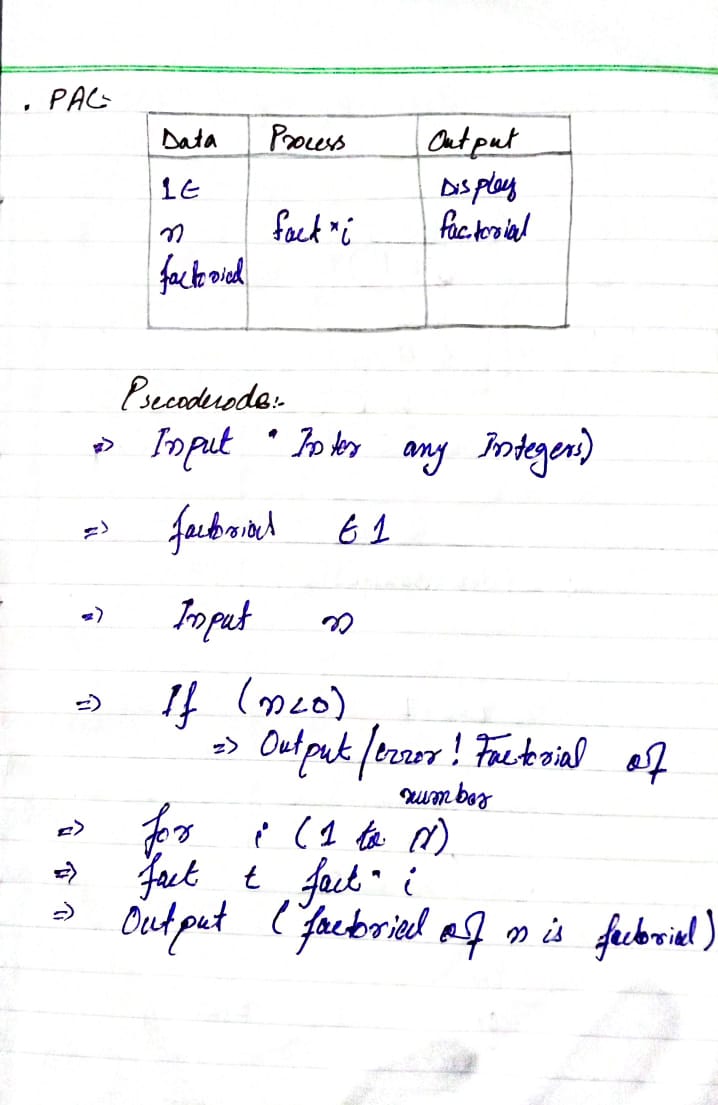 . PAC:-
Data Process Output
1 ← Display
n fact * i factorial
factorial
Pseudocode:-
=> Input " Enter any Integers)
=> factorial ← 1
=> Input n
=> If (n<0)
=> Output /error! Factorial of
number
=> for i (1 to N)
=> fact ← fact * i
=> Output (factorial of n is factorial)